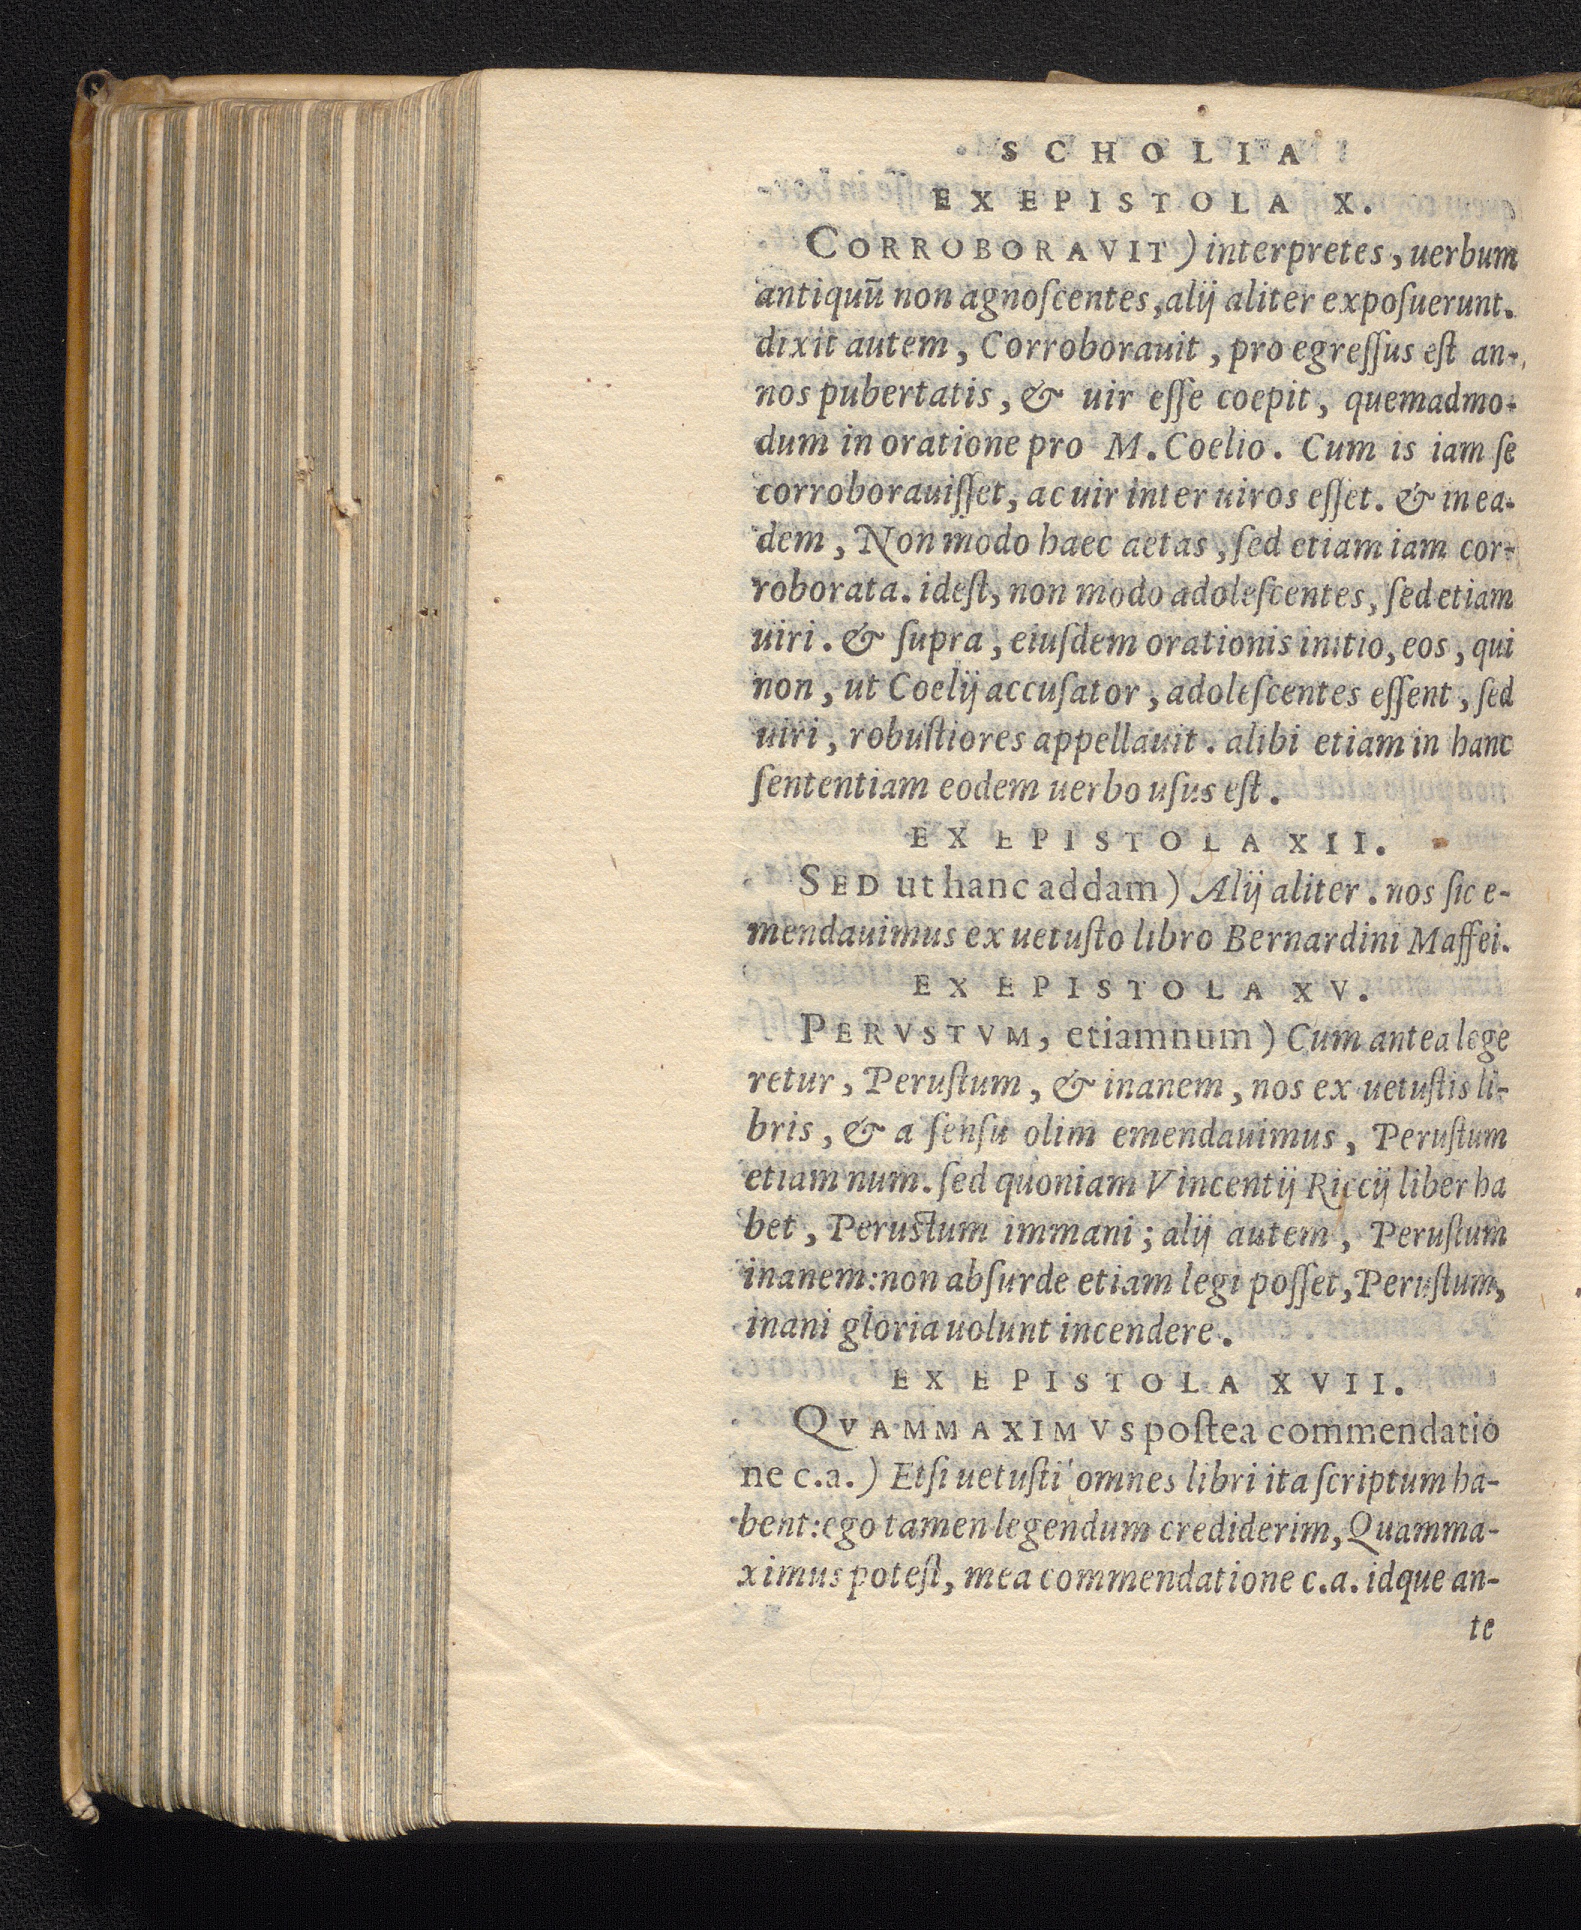 SCHOLIA
EX EPISTOLA X.
CORROBORAVIT) interpretes, uerbum
antiquũ non agnoſcentes, alij aliter expoſuerunt.
dixit autem, Corroborauit, pro egreſſus eſt an-
nos pubertatis, & uir eſſe coepit, quemadmo-
dum in oratione pro M. Coelio. Cum is iam ſe
corroborauiſſet, ac uir inter uiros eſſet. & in ea-
dem, Non modo haec aetas, ſed etiam iam cor-
roborata. ideſt, non modo adoleſcentes, ſed etiam
uiri. & ſupra, eiuſdem orationis initio, eos, qui
non, ut Coelij accuſator, adoleſcentes eſſent, ſed
uiri, robuſtiores appellauit. alibi etiam in hanc
ſententiam eodem uerbo uſus eſt.
EX EPISTOLA XII.
SED ut hanc addam) Alij aliter. nos ſic e-
mendauimus ex uetuſto libro Bernardini Maffei.
EX EPISTOLA XV.
PERVSTVM, etiamnum) Cum antea lege
retur, Peruſtum, & inanem, nos ex uetuſtis li-
bris, & a ſenſu olim emendauimus, Peruſtum
etiam num. ſed quoniam Vincentij Riccij liber ha
bet, Peruſtum immani; alij autem, Peruſtum
inanem: non abſurde etiam legi poſſet, Peruſtum,
inani gloria uolunt incendere.
EX EPISTOLA XVII.
QVAMMAXIMVS poſtea commendatio
ne c.a.) Etſi uetuſti omnes libri ita ſcriptum ha-
bent: ego tamen legendum crediderim, Quamma-
ximus poteſt, mea commendatione c.a. idque an-
te